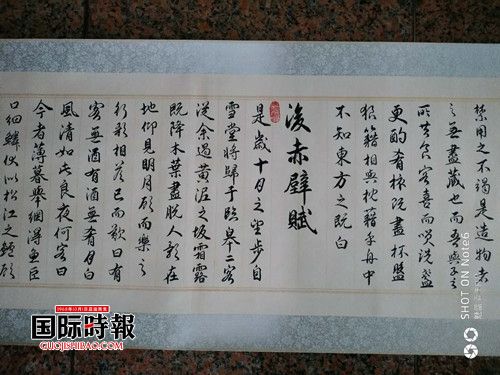 禁用之不竭是造物者
之無盡藏也而吾與子之
所共食客喜而笑洗盞
更酌肴核既盡杯盤
狼籍相與枕藉乎舟中
不知東方之既白
後赤壁賦
是歲十月之望步自
雪堂將歸于臨皋二客
從余過黃泥之坂霜露
既降木葉盡脫人影在
地仰見明月顧而樂之
行歌相答已而歎曰有
客無酒有酒無肴月白
風清如此良夜何客曰
今者薄暮舉網得魚巨
口細鱗狀似松江之鱸顧
国际時報
GUOJISHIBAO.COM
SHOT ON Note6